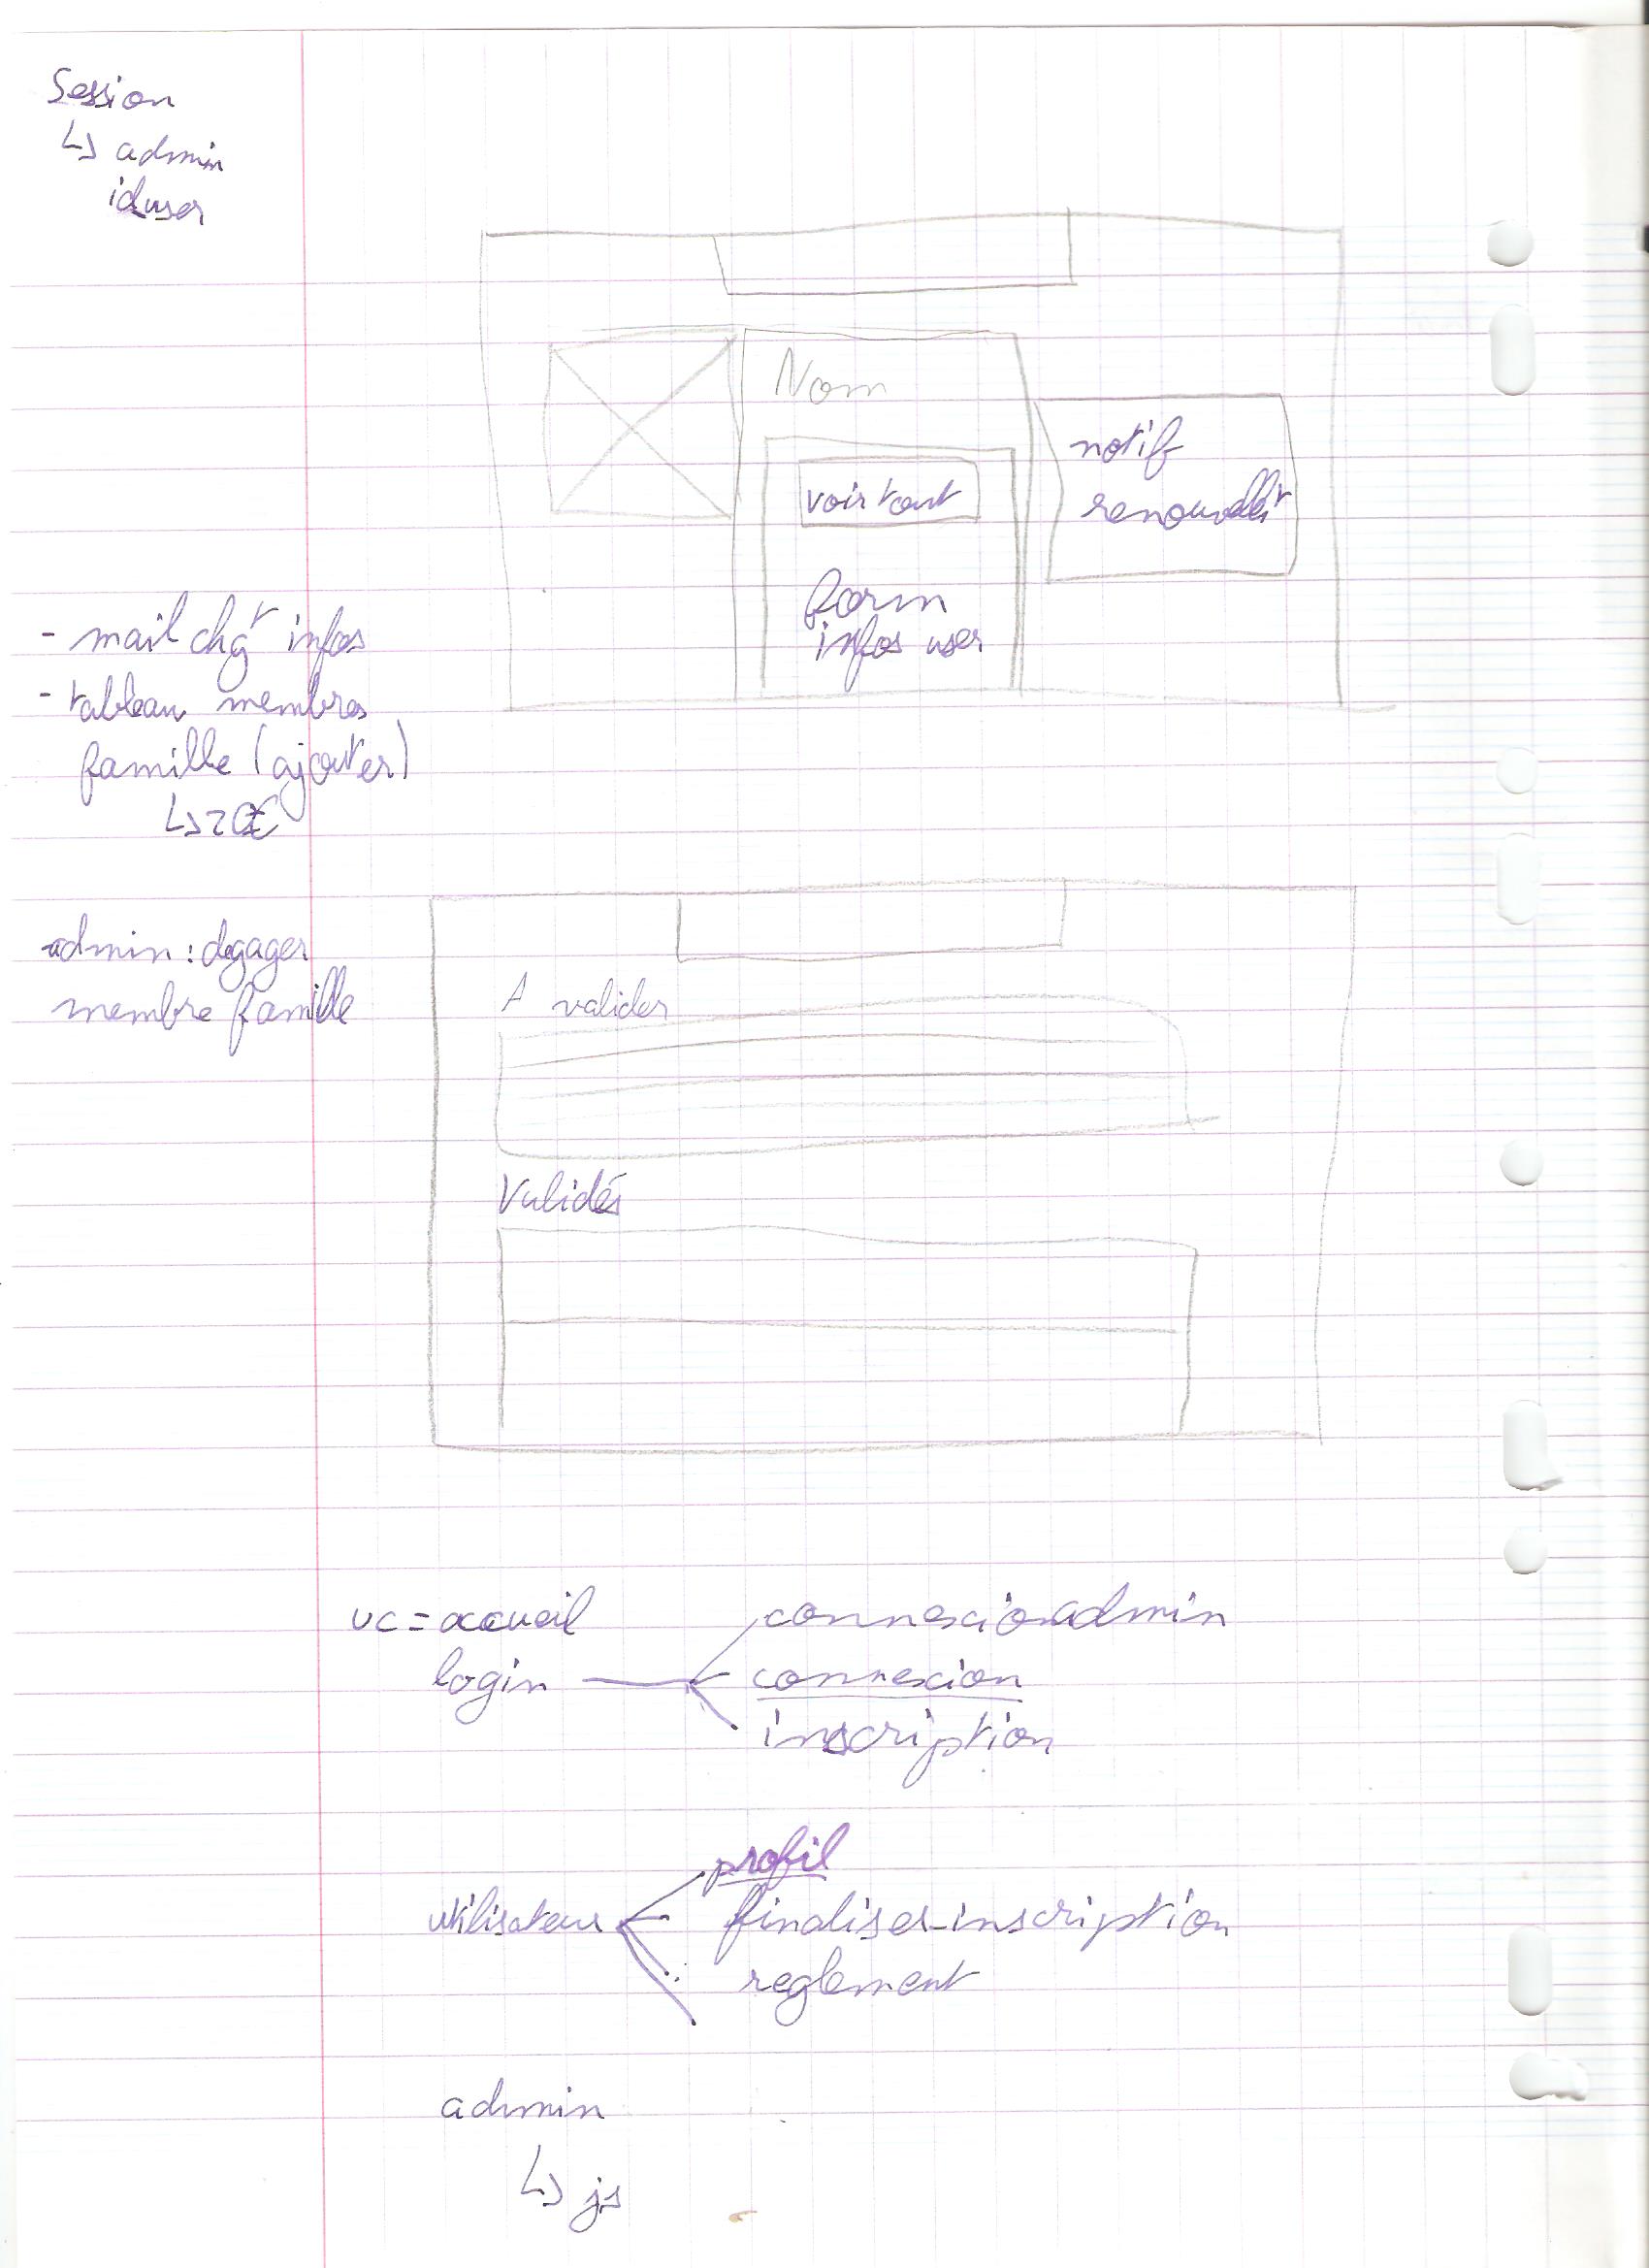 Session
↳ admin
iduser
Nom
voir tout
notif
renouvellt
form
infos user
- mail chgt infos
- tableau membres
famille (ajouter)
↳ 20€
admin : dégager
membre famille
A valider
Validés
uc = accueil
login
connexionadmin
connexion
inscription
utilisateur
profil
finaliser-inscription
reglement
admin
↳ js